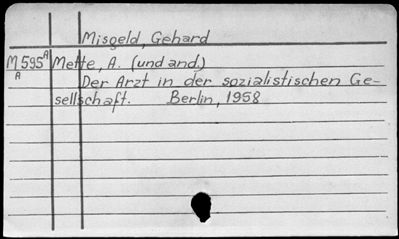 Misgeld, Gehard
M595A Mette, A. (und and.)
A Der Arzt in der sozialistischen Ge-
sellschaft. Berlin, 1958